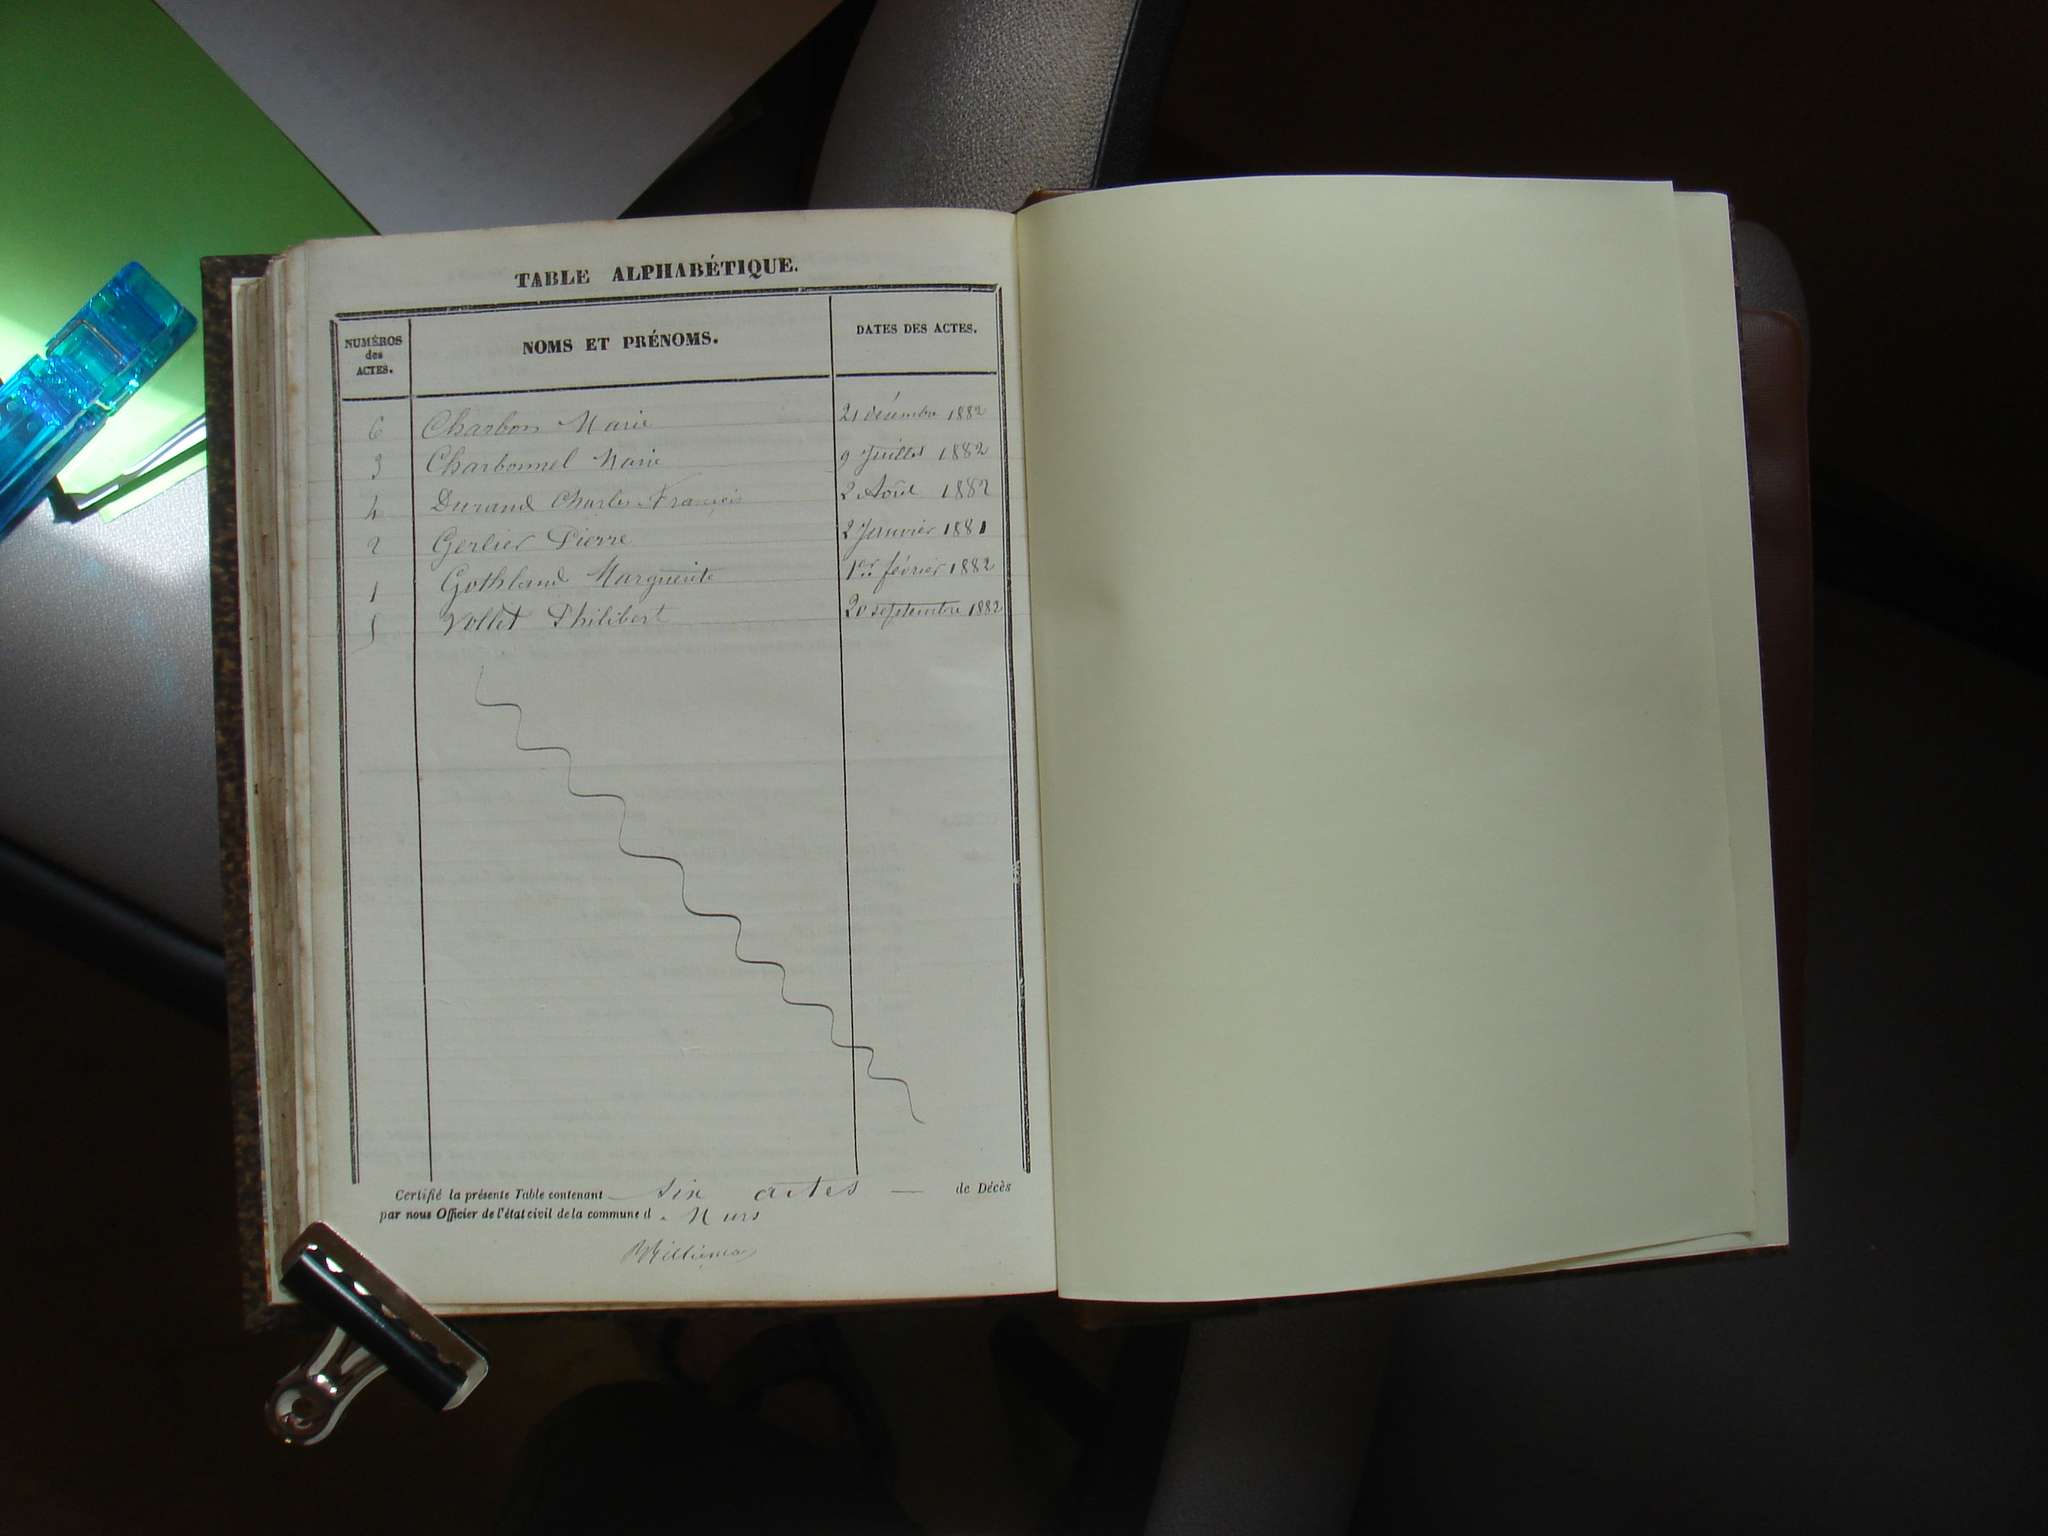 TABLE ALPHABÉTIQUE.
NUMÉROS des ACTES. NOMS ET PRÉNOMS. DATES DES ACTES.
6 Charbon Marie 21 décembre 1882
3 Charbonnel Marie 9 Juillet 1882
4 Durand Charles François 2 Août 1882
2 Gerlier Pierre 2 Janvier 1881
1 Gothland Marguerite 1er février 1882
5 Vollet Philibert 20 septembre 1882
Certifié la présente Table contenant six actes — de Décès
par nous Officier de l'état civil de la commune d